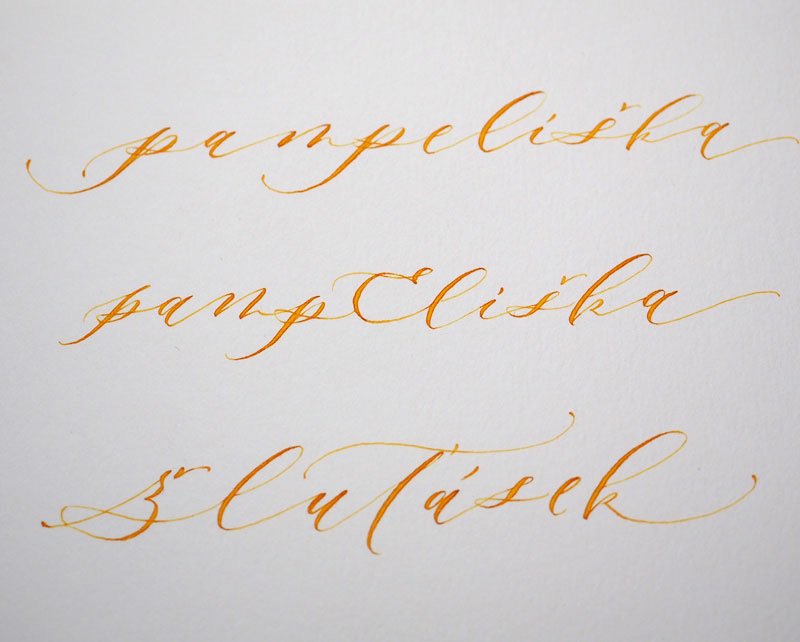 pampeliška
pampEliška
žluťásek